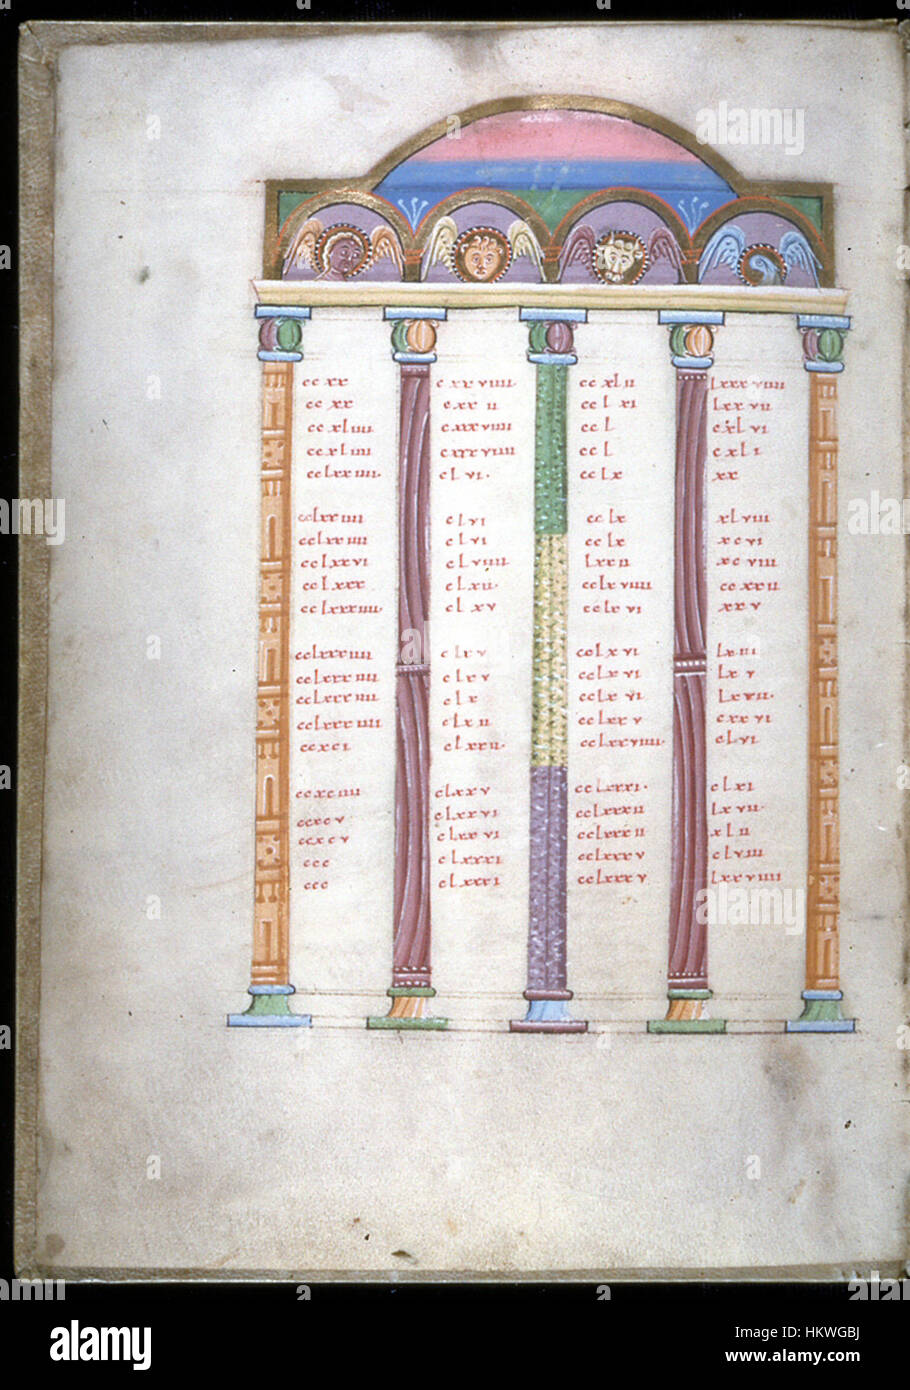 cc xx c xx viiii cc xl ii lxxx viiii
cc xx c xx ii cc l xi lxx vii
cc xl iiii c xxx viiii cc l c xl vi
cc xl iiii c xxx viiii cc l c xl i
cc lxx iiii. c l vi. cc lx xx
cc lxx iiii c l vi cc lx xl viii
cc lxx iiii c l vi cc lx xc vi
cc lxx vi c l viiii lxx ii xc viii
cc lxxx c lx ii. cc lx viiii cc xx ii
cc lxxx iiii c lx v cc lx vi xx v
cc lxxx iiii c lx v cc lx vi lx iii
cc lxxx iiii c lx v cc lx vi lx v
cc lxxx iiii c lx cc lx vi lxx ii.
cc lxxx iiii c lx ii cc lxx v c xx vi
cc xc i c lxx ii. cc lxx viiii. c l vi
cc xc iiii c lxx v cc lxxx i. c lx i
cc xc v c lxx vi. cc lxxx ii lx vii.
cc xc v c lxx vi cc lxxx ii xl ii
ccc c lxxx i cc lxxx v c l viii
ccc c lxxx i cc lxxx v lxx viiii
alamy
Image ID: HKWGBJ
www.alamy.com